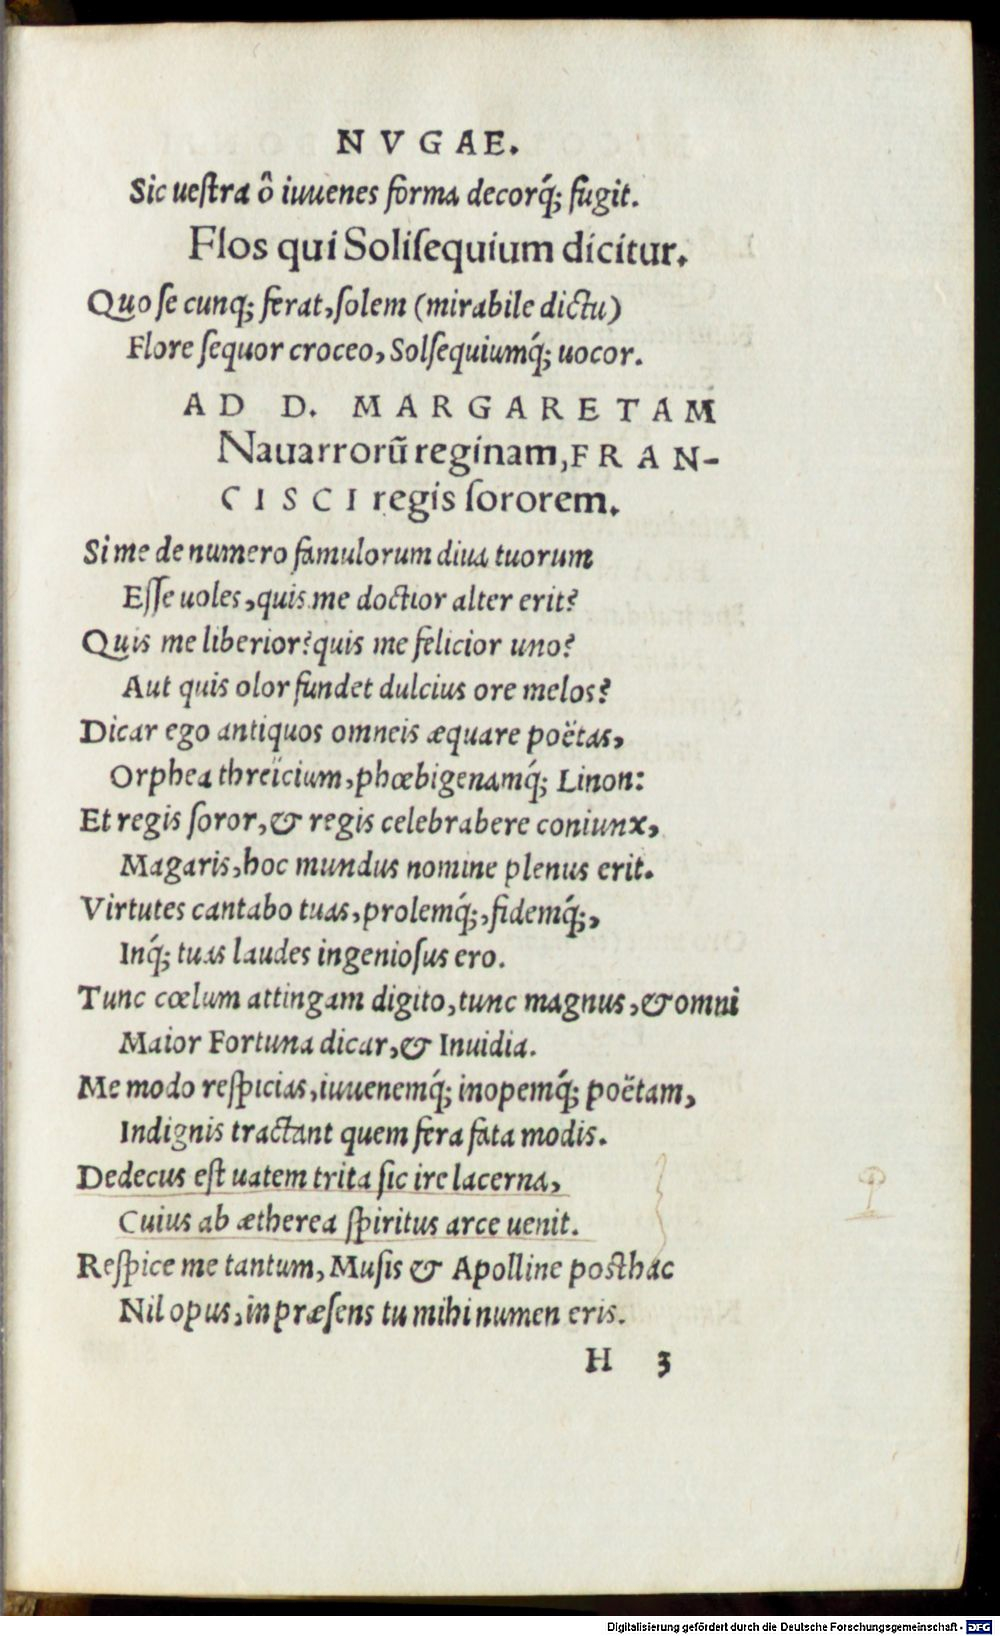 NVGAE.
Sic uestra ô iuuenes forma decorq́; fugit.
Flos qui Solisequium dicitur.
Quo se cunq; ferat, solem (mirabile dictu)
Flore sequor croceo, Solsequiumq́; uocor.
AD D. MARGARETAM
Nauarrorũ reginam, FRAN-
CISCI regis sororem.
Si me de numero famulorum diua tuorum
Esse uoles, quis me doctior alter erit?
Quis me liberior? quis me felicior uno?
Aut quis olor fundet dulcius ore melos?
Dicar ego antiquos omneis æquare poëtas,
Orphea threïcium, phœbigenamq́; Linon:
Et regis soror, & regis celebrabere coniunx,
Magaris, hoc mundus nomine plenus erit.
Virtutes cantabo tuas, prolemq́;, fidemq́;,
Inq́; tuas laudes ingeniosus ero.
Tunc cœlum attingam digito, tunc magnus, & omni
Maior Fortuna dicar, & Inuidia.
Me modo respicias, iuuenemq́; inopemq́; poëtam,
Indignis tractant quem fera fata modis.
Dedecus est uatem trita sic ire lacerna,
Cuius ab ætherea spiritus arce uenit.
Respice me tantum, Musis & Apolline posthac
Nil opus, in præsens tu mihi numen eris.
H 3
Digitalisierung gefördert durch die Deutsche Forschungsgemeinschaft - DFG